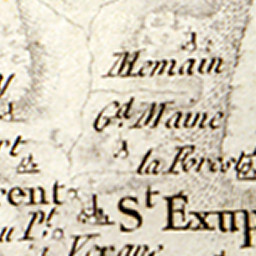 Memain
Gd. Maine
la Forest
rent
St Exup
u Pt.